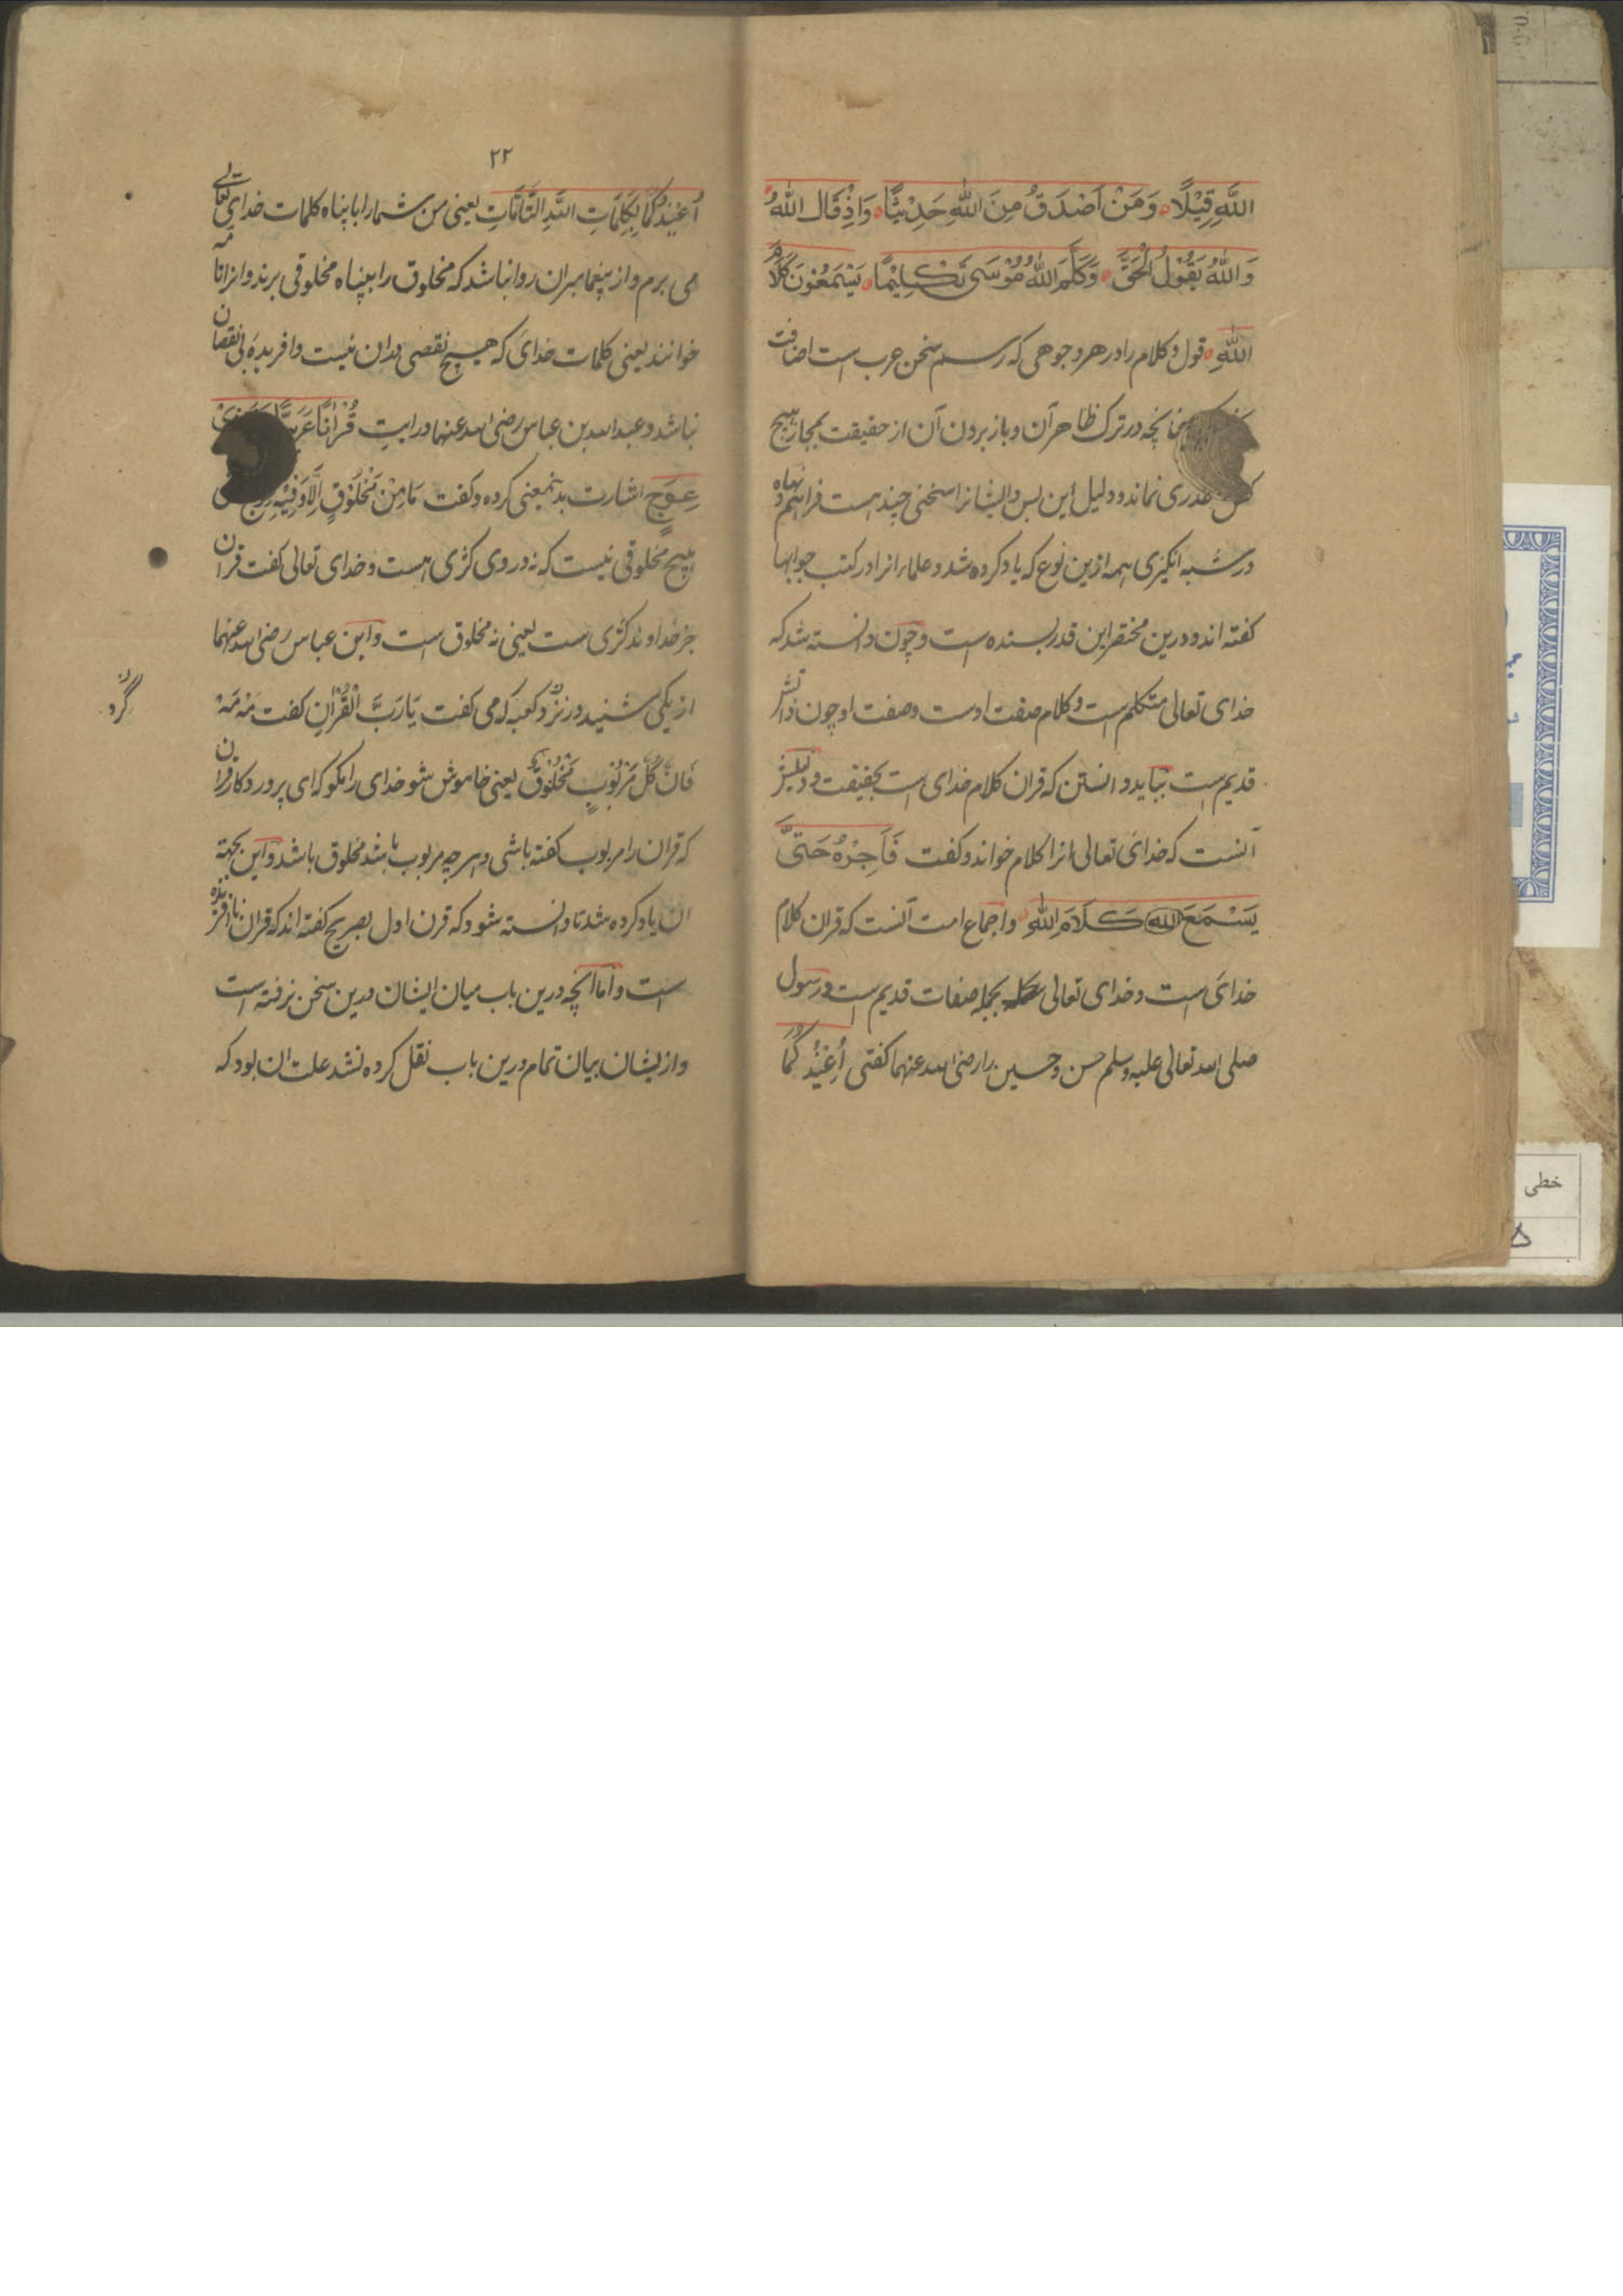 اللَّهِ قِيْلًا وَمَنْ اَصْدَقُ مِنَ اللهِ حَدِيْثًا وَاِذْ قَالَ اللهُ
وَاللهُ يَقُوْلُ الْحَقَّ وَكَلَّمَ اللهُ مُوْسَى تَكْلِيْمًا يَسْمَعُوْنَ كَلَامَ
اللهِ قول و کلام را در هر وجوهی که رسم سخن عرب است اضافت
نچه در ترک ظاهر آن و باز بردن آن از حقیقت بمجاز هیچ
عذری نماند و دلیل این بس و ایشانرا سخنی چند است فراهم نهاده
در شبه انگیزی همه ازین نوع که یاد کرده شد و علما انرا در کتب جوابها
کفته اند و درین مختصر این قدر بسنده است و چون دانسته شد که
خدای تعالی متکلم است و کلام صفت اوست وصفت او چون ذاتش
قدیم است بباید دانستن که قران کلام خدای است بحقیقت و دلیلش
آنست که خدای تعالی انرا کلام خواند و کفت فَاَجِرْهُ حَتَّى
يَسْمَعَ الله كَلَامَ اللهِ و اجماع امت آنست که قران کلام
خدای است و خدای تعالی بجمله صفات قدیم است و رسول
صلی الله تعالی علیه وسلم حسن و حسین را رضی الله عنهما کفتی أُعِيْذُكُمَا
۲۲
أُعِيْذُكُمَا بِكَلِمَاتِ اللهِ التَّامَّاتِ یعنی من شما را با پناه کلمات خدای تعالی
می برم و از پیغامبران روا نباشد که مخلوق را بپناه مخلوقی برند و انرا تامه
خوانند یعنی کلمات خدای که هیچ نقصی بدان نیست و افریده بی نقصان
نباشد و عبدالله بن عباس رضی الله عنهما در ایت قُرْاٰنًا عَرَبِيًّا
عِوَجٍ اشارت بدینمعنی کرده و کفت مَا مِنْ مَخْلُوْقٍ اِلَّا وَفِيْهِ
هیچ مخلوقی نیست که نه در وی کژی هست و خدای تعالی کفت قران
جز خداوند کژی است یعنی نه مخلوق است و ابن عباس رضی الله عنهما
از یکی شنید در نزد کعبه که می کفت يَا رَبَّ الْقُرْاٰنِ کفت مَهْ مَهْ
فَاِنَّ كُلَّ مَرْبُوْبٍ مَخْلُوْقٌ یعنی خاموش شو خدای را مکو که ای پروردکار قران
که قران را مربوب کفته باشی و هرچه مربوب باشد مخلوق باشد و این بجهته
ان یاد کرده شد تا دانسته شود که قرن اول بصریح کفته اند که قران ناافریده
است و اما انچه درین باب میان ایشان درین سخن نرفته است
و از یشان بیان تمام درین باب نقل کرده نشد علت ان بود که
گرد
خطی
۵